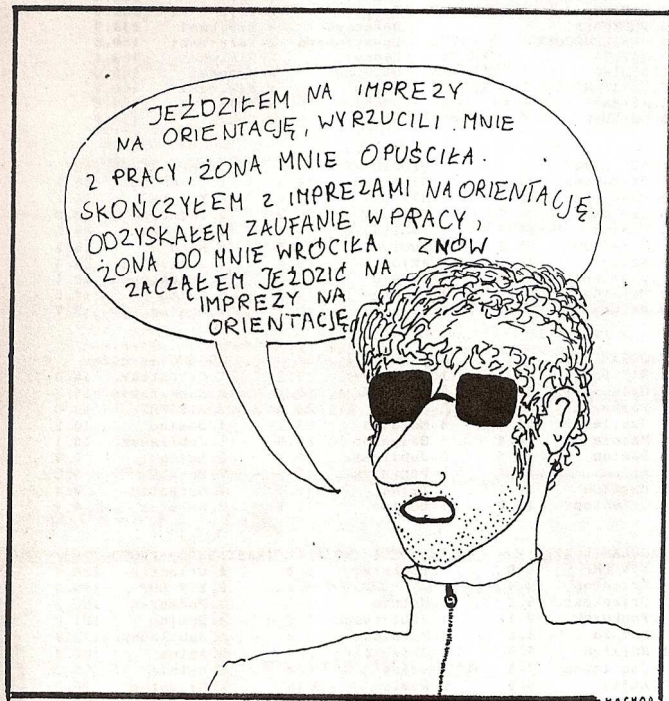 JEŹDZIŁEM NA IMPREZY
NA ORIENTACJĘ, WYRZUCILI MNIE
Z PRACY, ŻONA MNIE OPUŚCIŁA.
SKOŃCZYŁEM Z IMPREZAMI NA ORIENTACJĘ.
ODZYSKAŁEM ZAUFANIE W PRACY,
ŻONA DO MNIE WRÓCIŁA. ZNÓW
ZACZĄŁEM JEŹDZIĆ NA
IMPREZY NA
ORIENTACJĘ